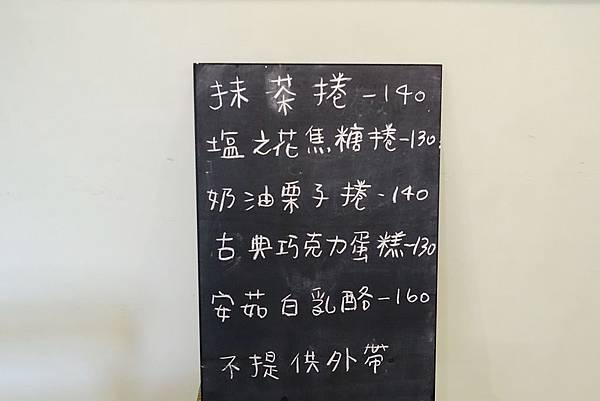 抹茶捲-140
塩之花焦糖捲-130
奶油栗子捲-140
古典巧克力蛋糕-130
安茹白乳酪-160
不提供外帶